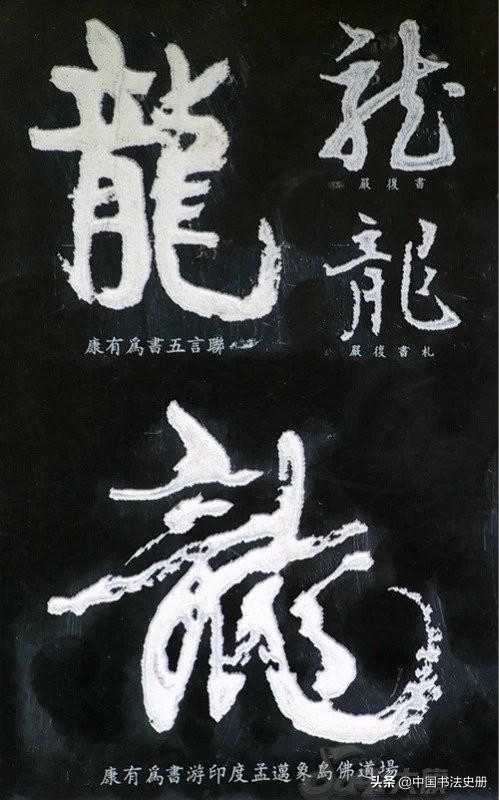 龍
康有爲書五言聯
龍
嚴復書
龍
嚴復書札
龍
康有爲書游印度孟邁象島佛道場
头条 @中国书法史册